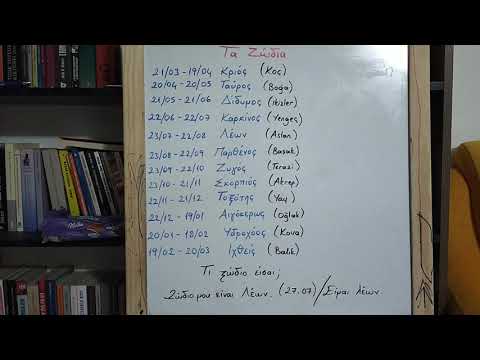 Τα Ζώδια
21/03 - 19/04 Κριός (Koç)
20/04 - 20/05 Ταύρος (Boğa)
21/05 - 21/06 Δίδυμος (ikizler)
22/06 - 22/07 Καρκίνος (Yengeç)
23/07 - 22/08 Λέων (Aslan)
23/08 - 22/09 Παρθένος (Başak)
23/09 - 22/10 Ζυγός (Terazi)
23/10 - 21/11 Σκορπιός (Akrep)
22/11 - 21/12 Τοξότης (Yay)
22/12 - 19/01 Αιγόκερως (Oğlak)
20/01 - 18/02 Υδροχόος (Kova)
19/02 - 20/03 Ιχθείς (Balık)
Τι ζώδιο είσαι;
Ζώδιο μου είναι Λέων. (27.07) / Είμαι λέων